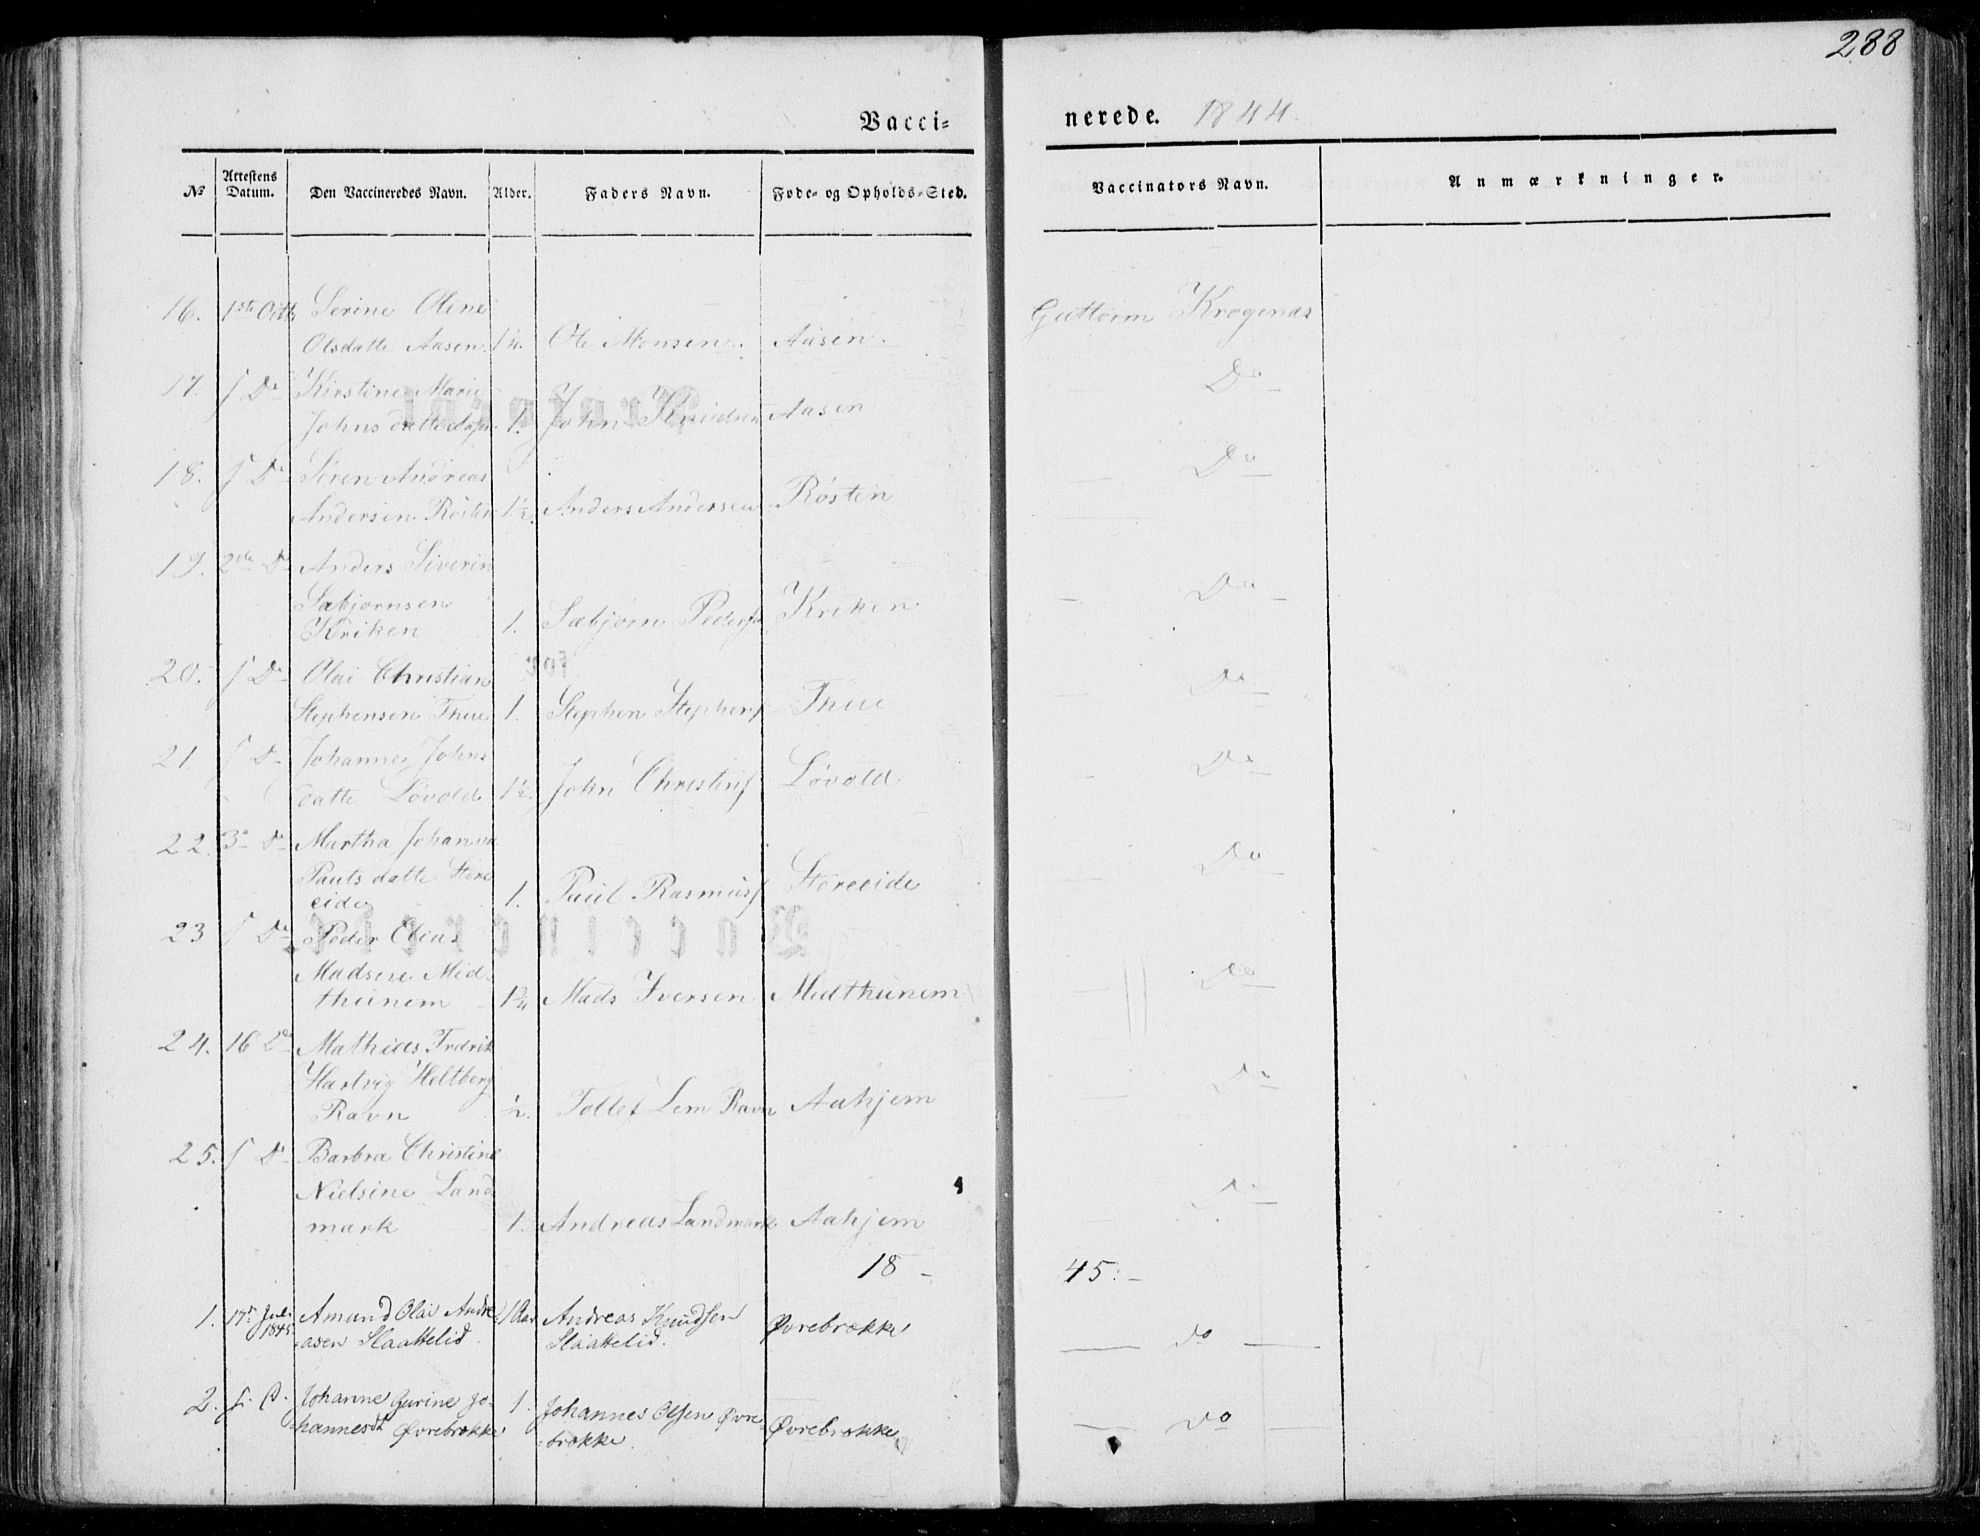 288
Vacci=
nerede. 1844.
No
Attestens Datum.
Den Vaccineredes Navn.
Alder.
Faders Navn.
Føde- og Opholds-Sted.
Vaccinators Navn.
Anmærkninger.
16. 1ste Octb Serine Oline
Olsdatte Aasen. 1¼. Ole Monsen. Aasen. Guttorm Krogenæs
17. s Do Kirstine Marie
Johnsdatte Aasen 1. John Knudsen Aasen Do
18. s Do Søren Andreas
Andersen Røsten 1½. Anders Andersen Røsten Do
19. 2de Do Anders Siverin
Sæbjørnsen
Kriken 1. Sæbjørn Peders Kriken Do
20. s Do Olai Christian
Stephensen Thue 1. Stephen Stephens Thue Do
21. s Do Johanne Johns
datte Løvold 1½. John Christens Løvold Do
22. 3 Do Martha Johanna
Paulsdatte Store
eide 1. Paul Rasmus Storeeide Do
23 s Do Peder Elias
Madsen Mid-
thunem 1¾ Mads Iversen Midthunem Do
24. 16 Do Mathias Fredrik
Hartvig Heltberg
Ravn ½. Tollef Lem Ravn Aahjem Do
25. s Do Barbra Christine
Nielsine Land
mark 1. Andreas Landmark Aahjem Do
18 - 45:-
1. 17de Juli Amund Olai Andre 1 Aar Andreas Knudsen
1845 =asen Slaattelid. Slaattelid. Øvrebrække do
2. s. D. Johanne Gurine Jo- 1. Johannes Olsen Øvre-
=hannesdt Øvrebrække =brække. Øvrebrække Do